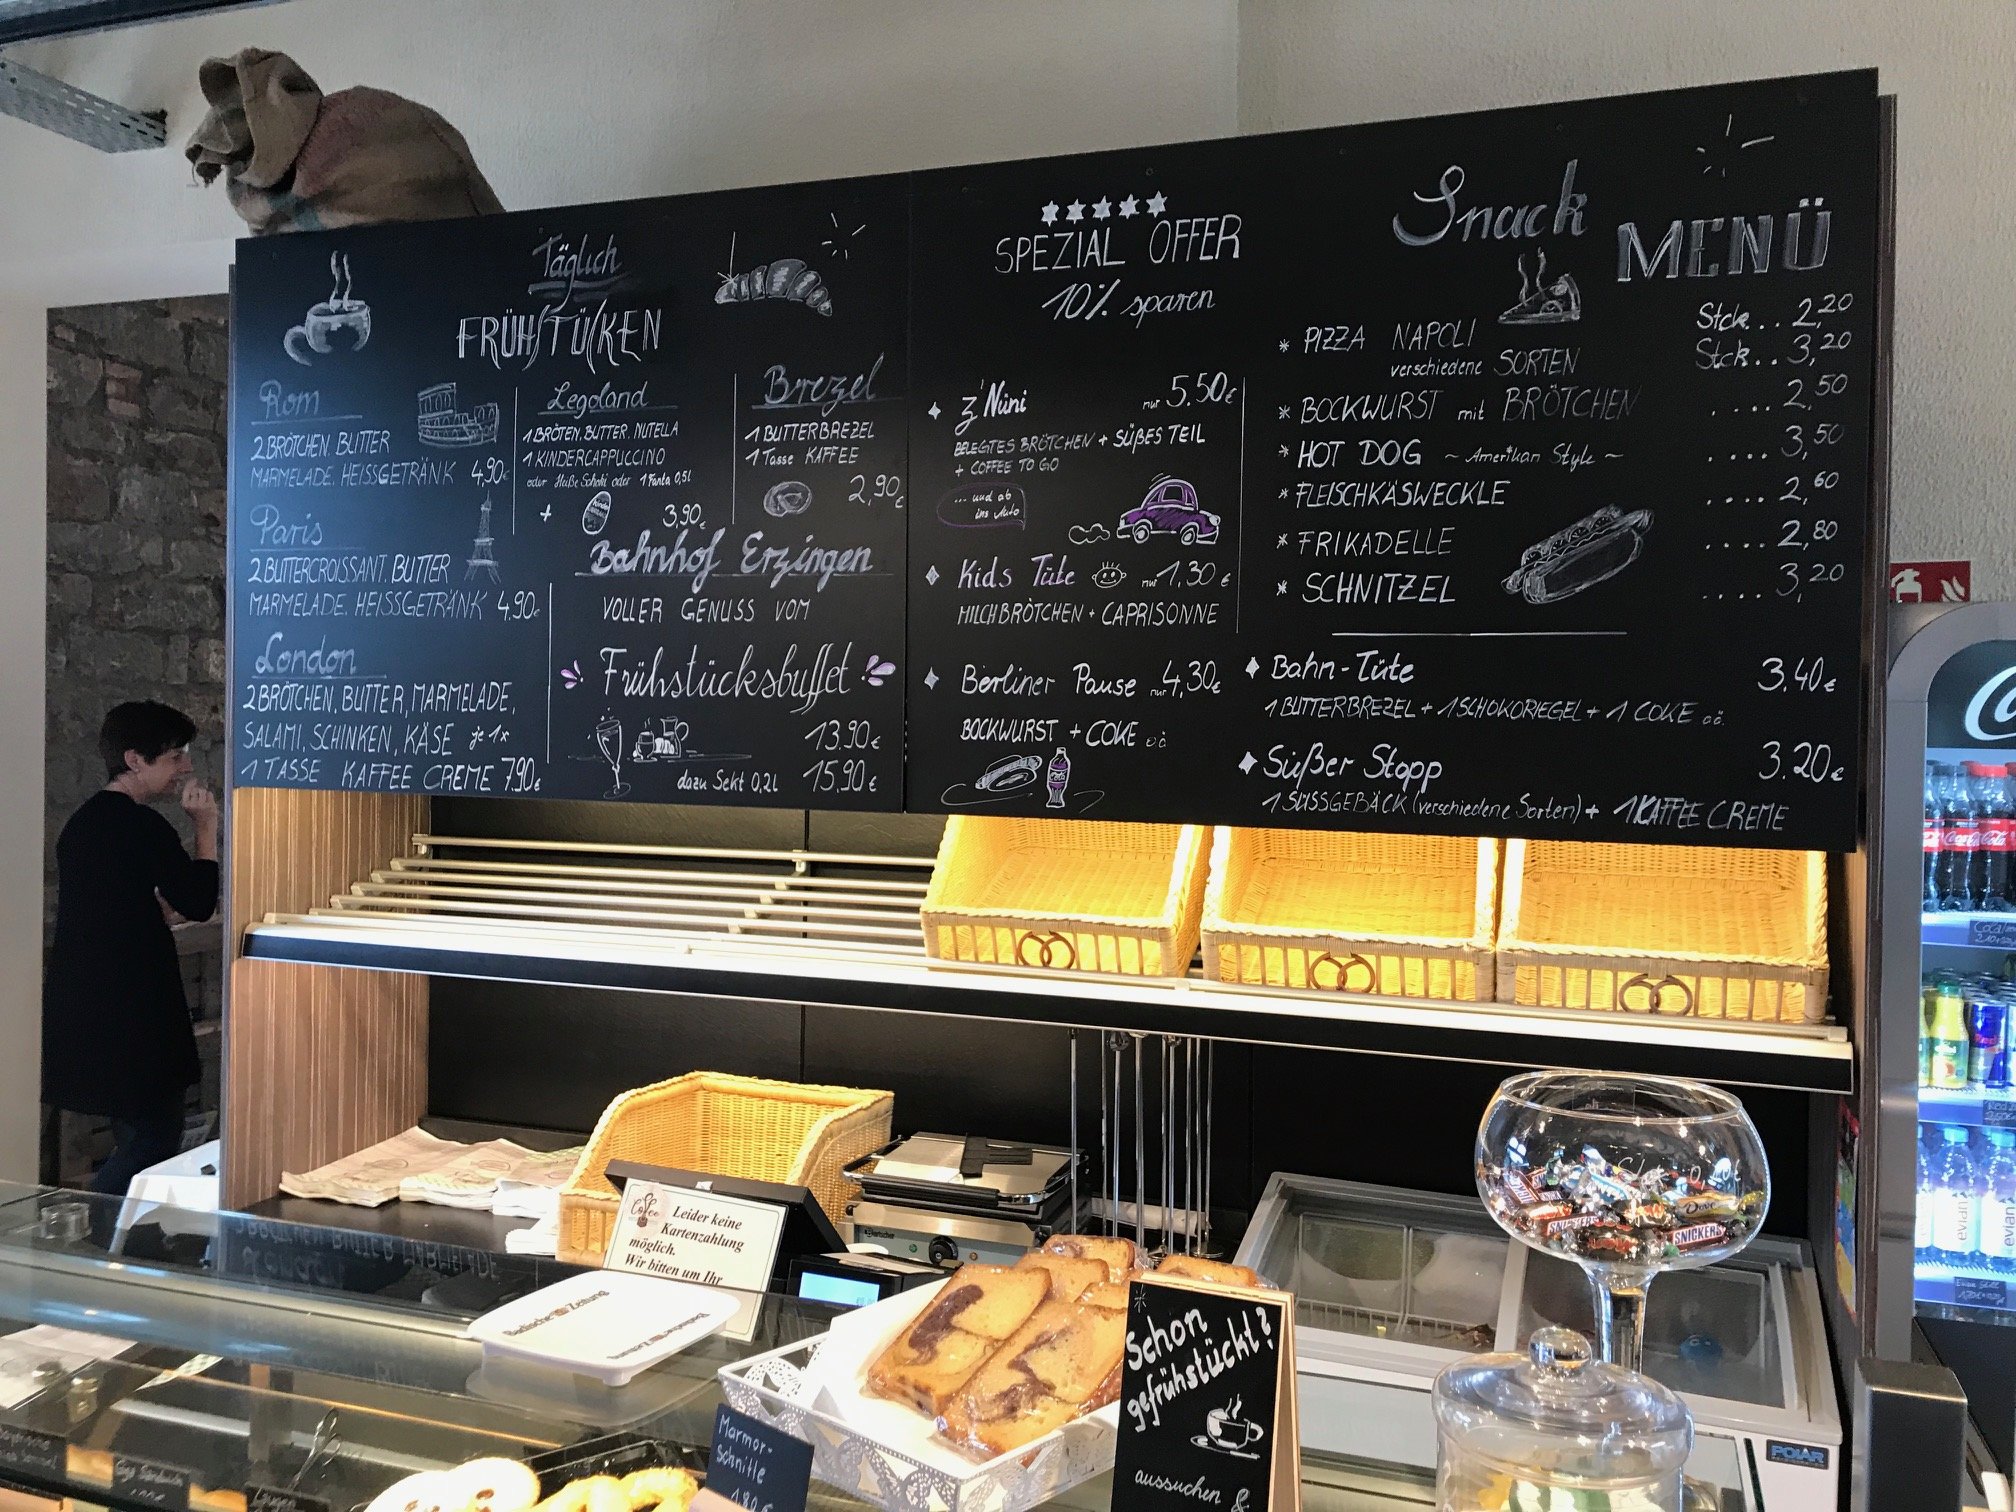 Täglich
FRÜHSTÜCKEN
Rom
2 BRÖTCHEN. BUTTER
MARMELADE. HEISSGETRÄNK 4,90€
Paris
2 BUTTERCROISSANT. BUTTER
MARMELADE. HEISSGETRÄNK 4.90€
London
2 BRÖTCHEN, BUTTER, MARMELADE,
SALAMI, SCHINKEN, KÄSE je 1x
1 TASSE KAFFEE CREME 7.90€
Legoland
1 BRÖTEN. BUTTER. NUTELLA
1 KINDERCAPPUCCINO
oder Heiße Schoki oder 1 Fanta 0,5l
+
3,90€
Brezel
1 BUTTERBREZEL
1 Tasse KAFFEE
2,90€
Bahnhof Erzingen
VOLLER GENUSS VOM
Frühstücksbuffet
13.90€
dazu Sekt 0,2l 15,90€
SPEZIAL OFFER
10% sparen
z'Nüni nur 5.50€
BELEGTES BRÖTCHEN + SÜßES TEIL
+ COFFEE TO GO
... und ab
ins Auto
Kids Tüte nur 1,30€
MILCHBRÖTCHEN + CAPRISONNE
Berliner Pause nur 4,30€
BOCKWURST + COKE oä
Snack
MENÜ
* PIZZA NAPOLI Stck... 2,20
verschiedene SORTEN Stck.. 3,20
* BOCKWURST mit BRÖTCHEN .... 2,50
* HOT DOG ~ Amerikan Style ~ .... 3,50
* FLEISCHKÄSWECKLE .... 2,60
* FRIKADELLE .... 2,80
* SCHNITZEL .... 3,20
Bahn-Tüte 3.40€
1 BUTTERBREZEL + 1 SCHOKORIEGEL + 1 COKE oä.
Süßer Stopp 3.20€
1 SÜSSGEBÄCK (verschiedene Sorten) + 1 KAFFEE CREME
Coffee
Leider keine
Kartenzahlung
möglich.
Wir bitten um Ihr
Badische Zeitung
Badische Zeitung
Schon
gefrühstückt?
aussuchen &
Marmor-
Schnitte
1,80€
SNICKERS
Coca-Cola
evian
evian
POLAR